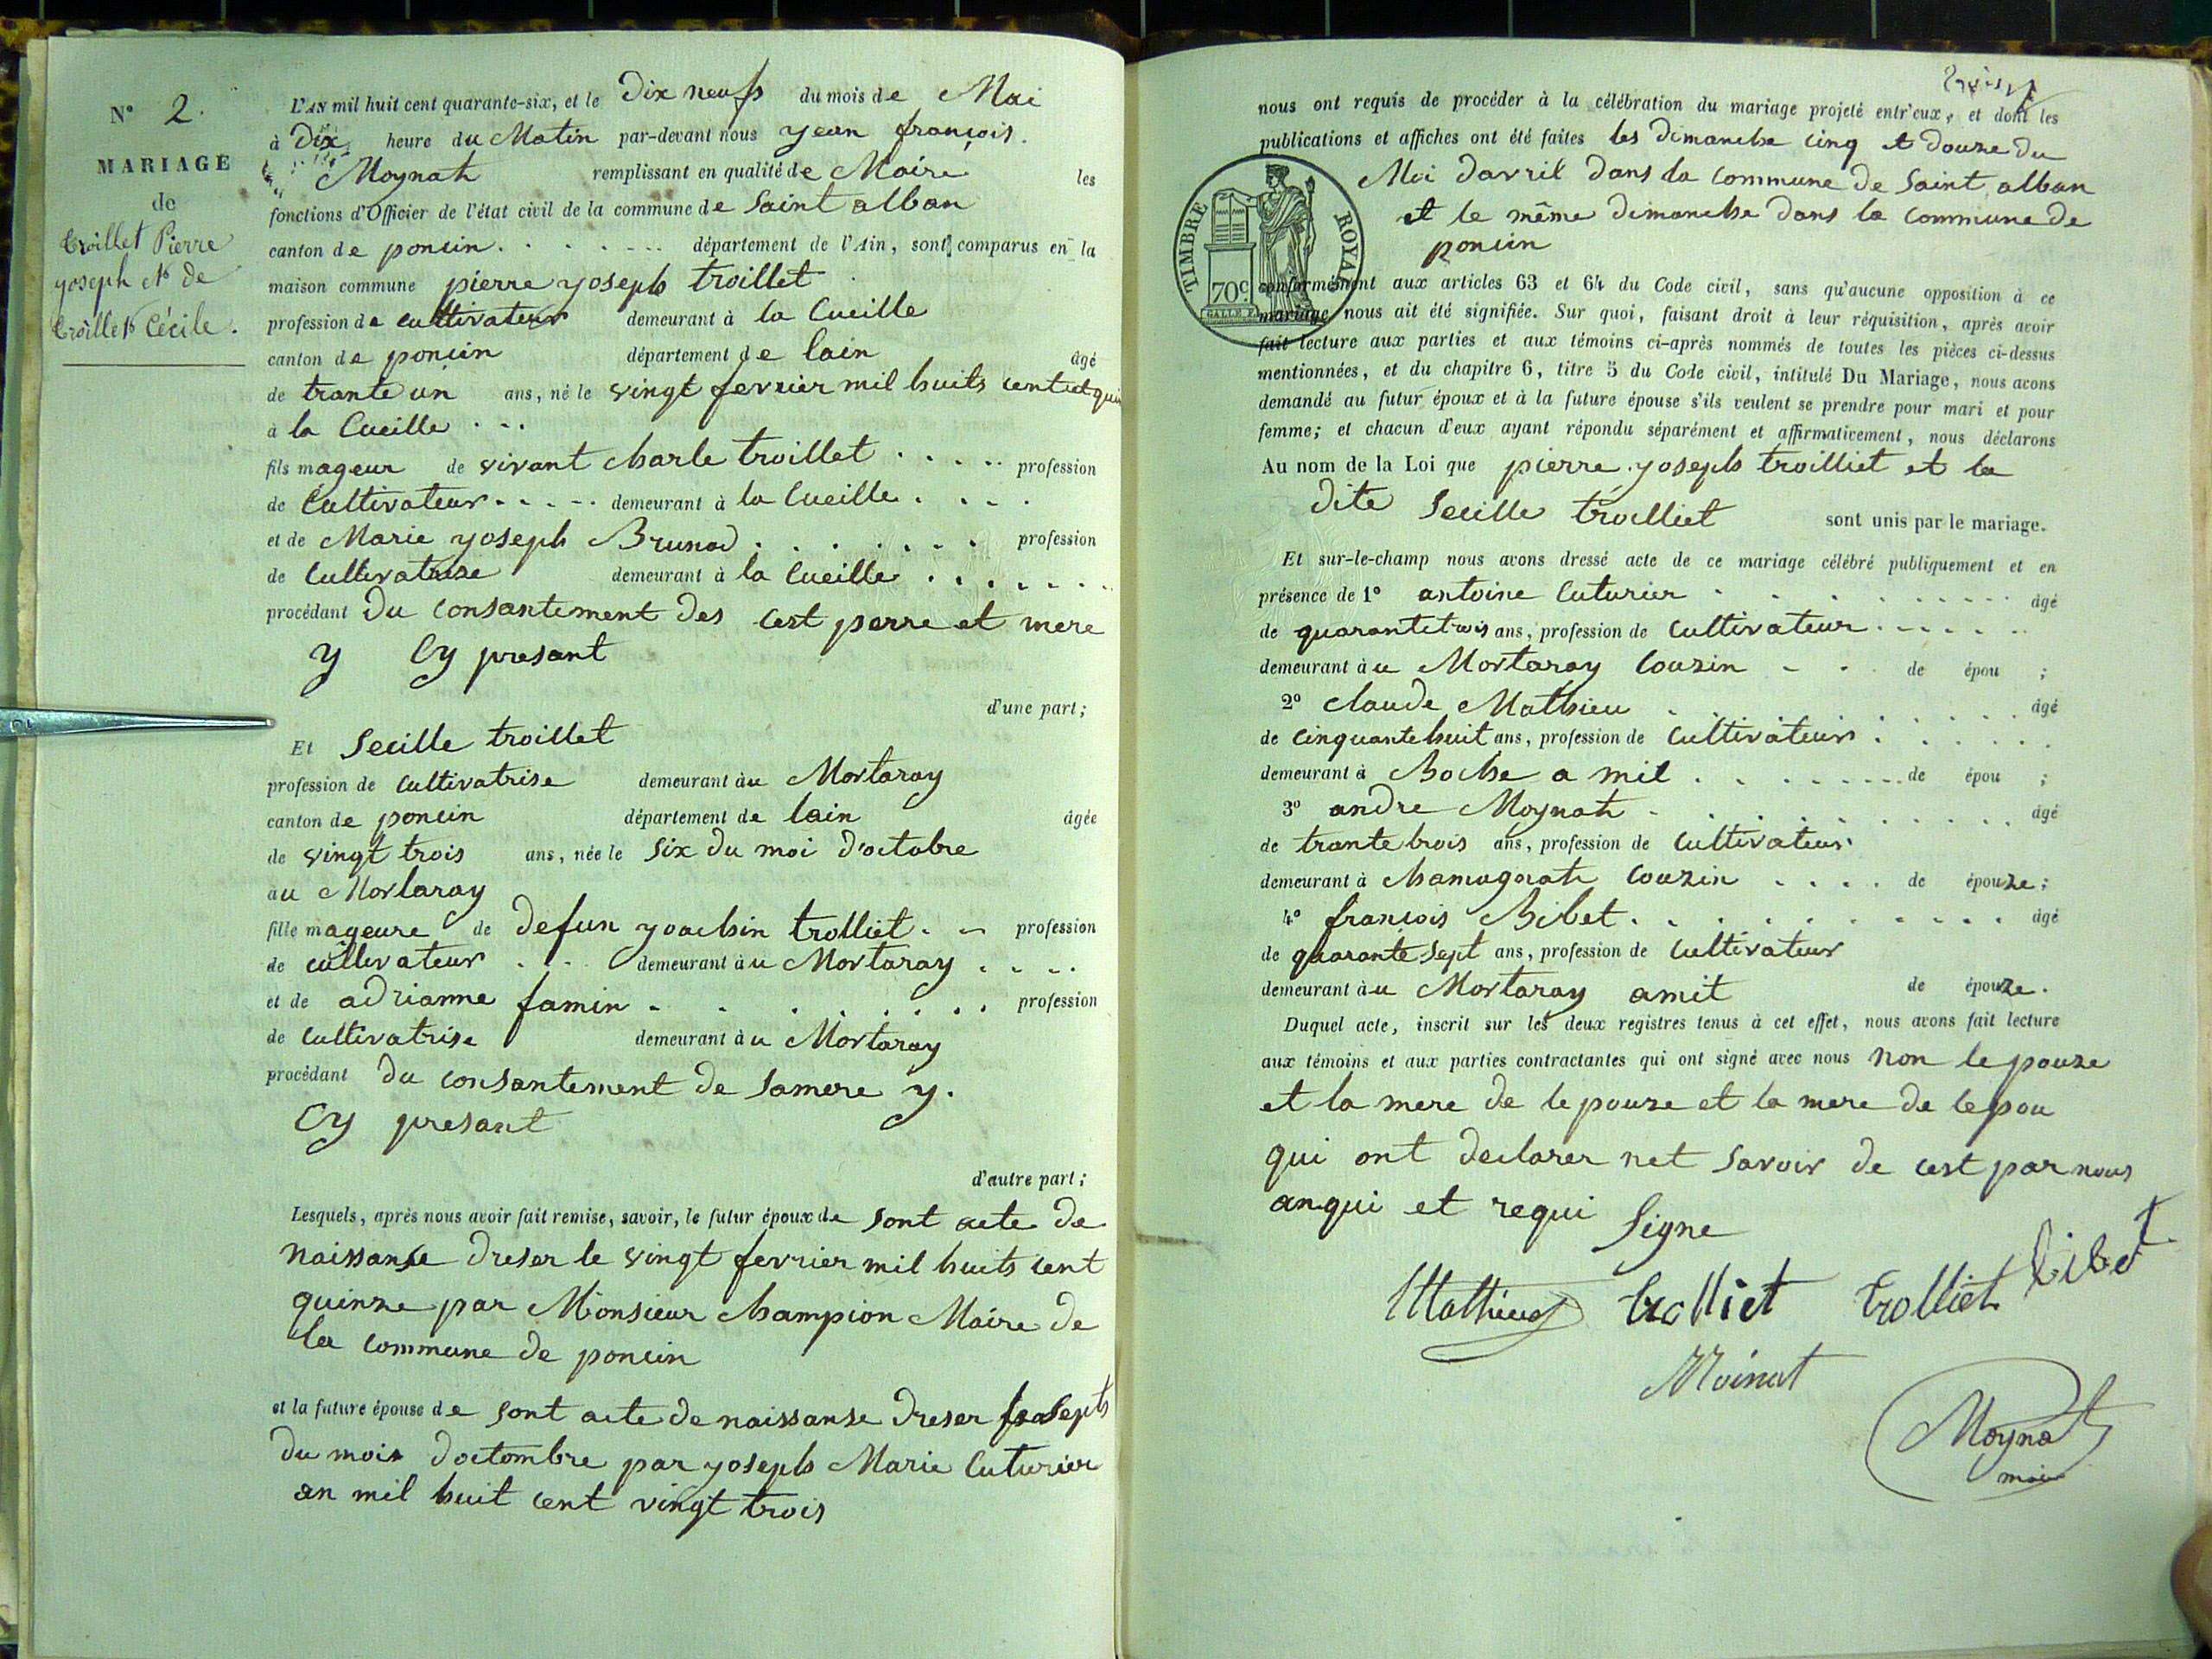 N° 2.
MARIAGE
de
troillet Pierre
yoseph et de
troillet Cécile.
L'AN mil huit cent quarante-six, et le Dix neufs du mois de Mai
à Dix heure du Matin par-devant nous yean françois
Moynat remplissant en qualité de Maire les
fonctions d'Officier de l'état civil de la commune de Saint alban
canton de poncin. département de l'Ain, sont comparus en la
maison commune pierre yoseph troillet
profession de cultivateur demeurant à la Cueille
canton de poncin département de lain âgé
de trante un ans, né le vingt fevrier mil huits centet quin
à la Cueille
fils mageur de vivant charle troillet profession
de Cultivateur demeurant à la Cueille
et de Marie yoseph Brunod profession
de Cultivatrise demeurant à la Cueille
procédant Du consantement des cest perre et mere
y Cy presant
d'une part;
Et Secille troillet
profession de cultivatrise demeurant àu Mortaray
canton de poncin département de lain âgée
de vingt trois ans, née le six du moi d'octobre
àu Mortaray
fille mageure de defun yoachin trolliet profession
de cultivateur demeurant àu Mortaray
et de adrianne famin profession
de cultivatrise demeurant àu Mortaray
procédant du consantement de samere y.
Cy presant
d'autre part;
Lesquels, après nous avoir fait remise, savoir, le futur époux de sont acte de
naissanse dreser le vingt fevrier mil huits cent
quinze par Monsieur champion Maire de
la commune de poncin
et la future épouse de sont acte de naissanse dreser sept
du mois doctombre par yoseph Marie Cuturier
an mil huit cent vingt trois
nous ont requis de procéder à la célébration du mariage projeté entr'eux, et dont les
publications et affiches ont été faites les dimanche cinq et douze du
Moi davril dans la commune de Saint alban
et le même dimanche dans la commune de
poncin
TIMBRE ROYAL
70c.
conformément aux articles 63 et 64 du Code civil, sans qu'aucune opposition à ce
mariage nous ait été signifiée. Sur quoi, faisant droit à leur réquisition, après avoir
fait lecture aux parties et aux témoins ci-après nommés de toutes les pièces ci-dessus
mentionnées, et du chapitre 6, titre 5 du Code civil, intitulé Du Mariage, nous avons
demandé au futur époux et à la future épouse s'ils veulent se prendre pour mari et pour
femme; et chacun d'eux ayant répondu séparément et affirmativement, nous déclarons
Au nom de la Loi que pierre yoseph troilliet et la
dite Secille trolliet sont unis par le mariage.
Et sur-le-champ nous avons dressé acte de ce mariage célébré publiquement et en
présence de 1° antoine Cuturier âgé
de quarantetrois ans, profession de Cultivateur
demeurant àu Mortaray Couzin de épou ;
2° claude Mathieu âgé
de cinquantehuit ans, profession de Cultivateur
demeurant à Boche a mit de épou ;
3° andre Moynat âgé
de trantetrois ans, profession de Cultivateur
demeurant à chamagnat Couzin de épouze;
4° françois Bibet âgé
de quarantesept ans, profession de Cultivateur
demeurant àu Mortaray amit de épouze.
Duquel acte, inscrit sur les deux registres tenus à cet effet, nous avons fait lecture
aux témoins et aux parties contractantes qui ont signé avec nous non lepouze
et la mere de lepouze et la mere de lepou
qui ont declarer net savoir de cest par nous
anqui et requi Signe
Mathieu trolliet trolliet bibet
Moinat
Moynat
maire